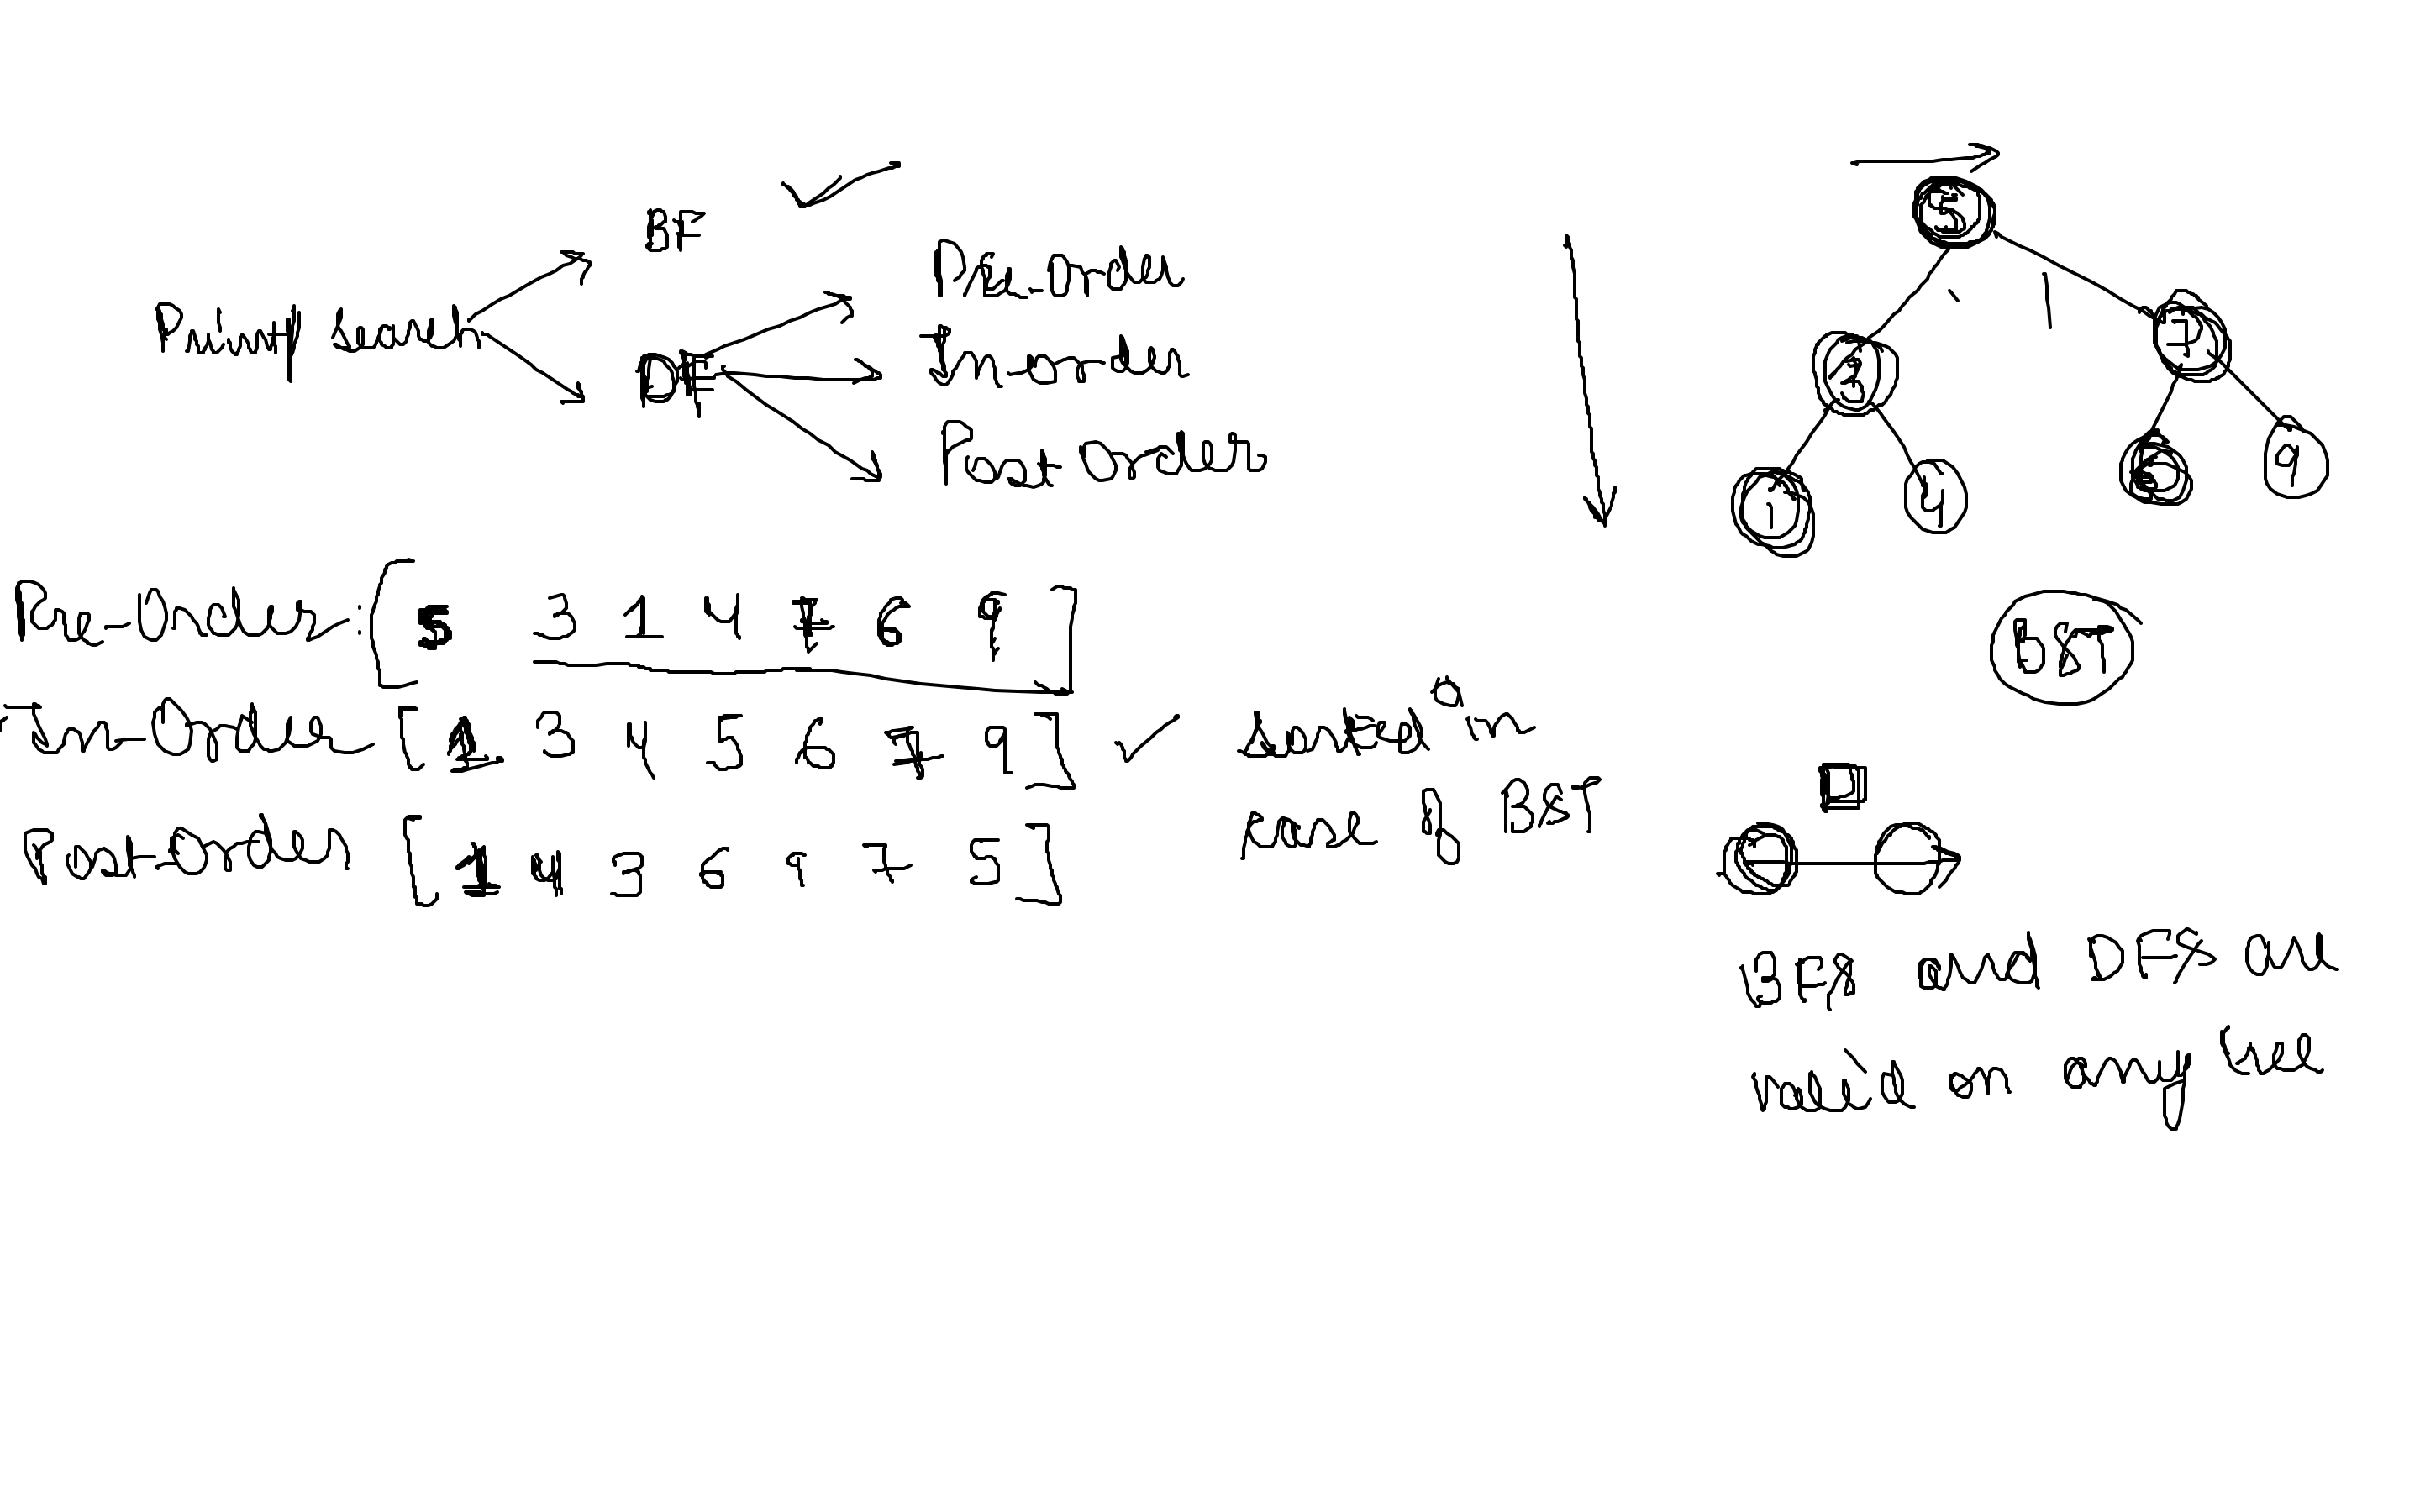 BF
Print/ search
DF
Pre-order
In order
Post Order
5
3
7
1
4
6
9
Pre-Order : [ 5 3 1 4 7 6 9 ]
In-Order [ 1 3 4 5 6 7 9 ] sorted in
case of BST
Post-Order [ 1 4 3 6 9 7 5 ]
BST
BFS and DFS are
valid on any tree